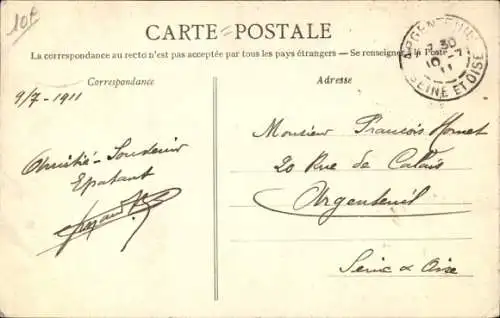 10f
CARTE POSTALE
La correspondance au recto n'est pas acceptée par tous les pays étrangers — Se renseigner à la Poste
ARGENTEUIL
7 30
10 - 7
11
SEINE ET OISE
Correspondance
Adresse
9/7 - 1911
Amitié - Souvenir
Epatant
Monsieur François Hornet
20 Rue de Calais
Argenteuil
Seine & Oise